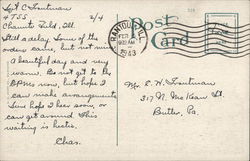 Sgt C Troutman
4 TSS 2/4
Chanute Field, Ill.
Still a delay. Some of the
orders came, but not mine
A beautiful day and very
warm. Do not get to the
now, but hope I
can make arrangements
Sure hope I hear soon, or
can get around. This
waiting is hectic.
Chas.
RANTOUL, ILL.
FEB
9 AM
1943
Post
Card
Mr. E. H. Troutman
317 N. McKean St.
Butler, Pa.